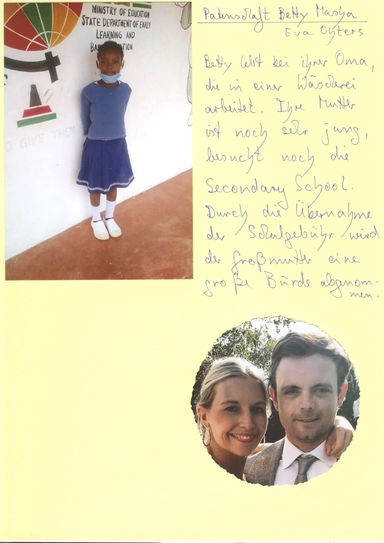 MINISTRY OF EDUCATION
STATE DEPARTMENT OF EARLY
LEARNING AND
BASIC EDUCATION
TO GIVE THEM
Patenschaft Betty Masha
Eva
Betty lebt bei ihrer Oma,
die in einer Wäscherei
arbeitet. Ihre Mutter
ist noch sehr jung,
besucht noch die
Secondary School.
Durch die Übernahme
der Schulgebühr wird
der Großmutter eine
große Bürde abgenom-
men.